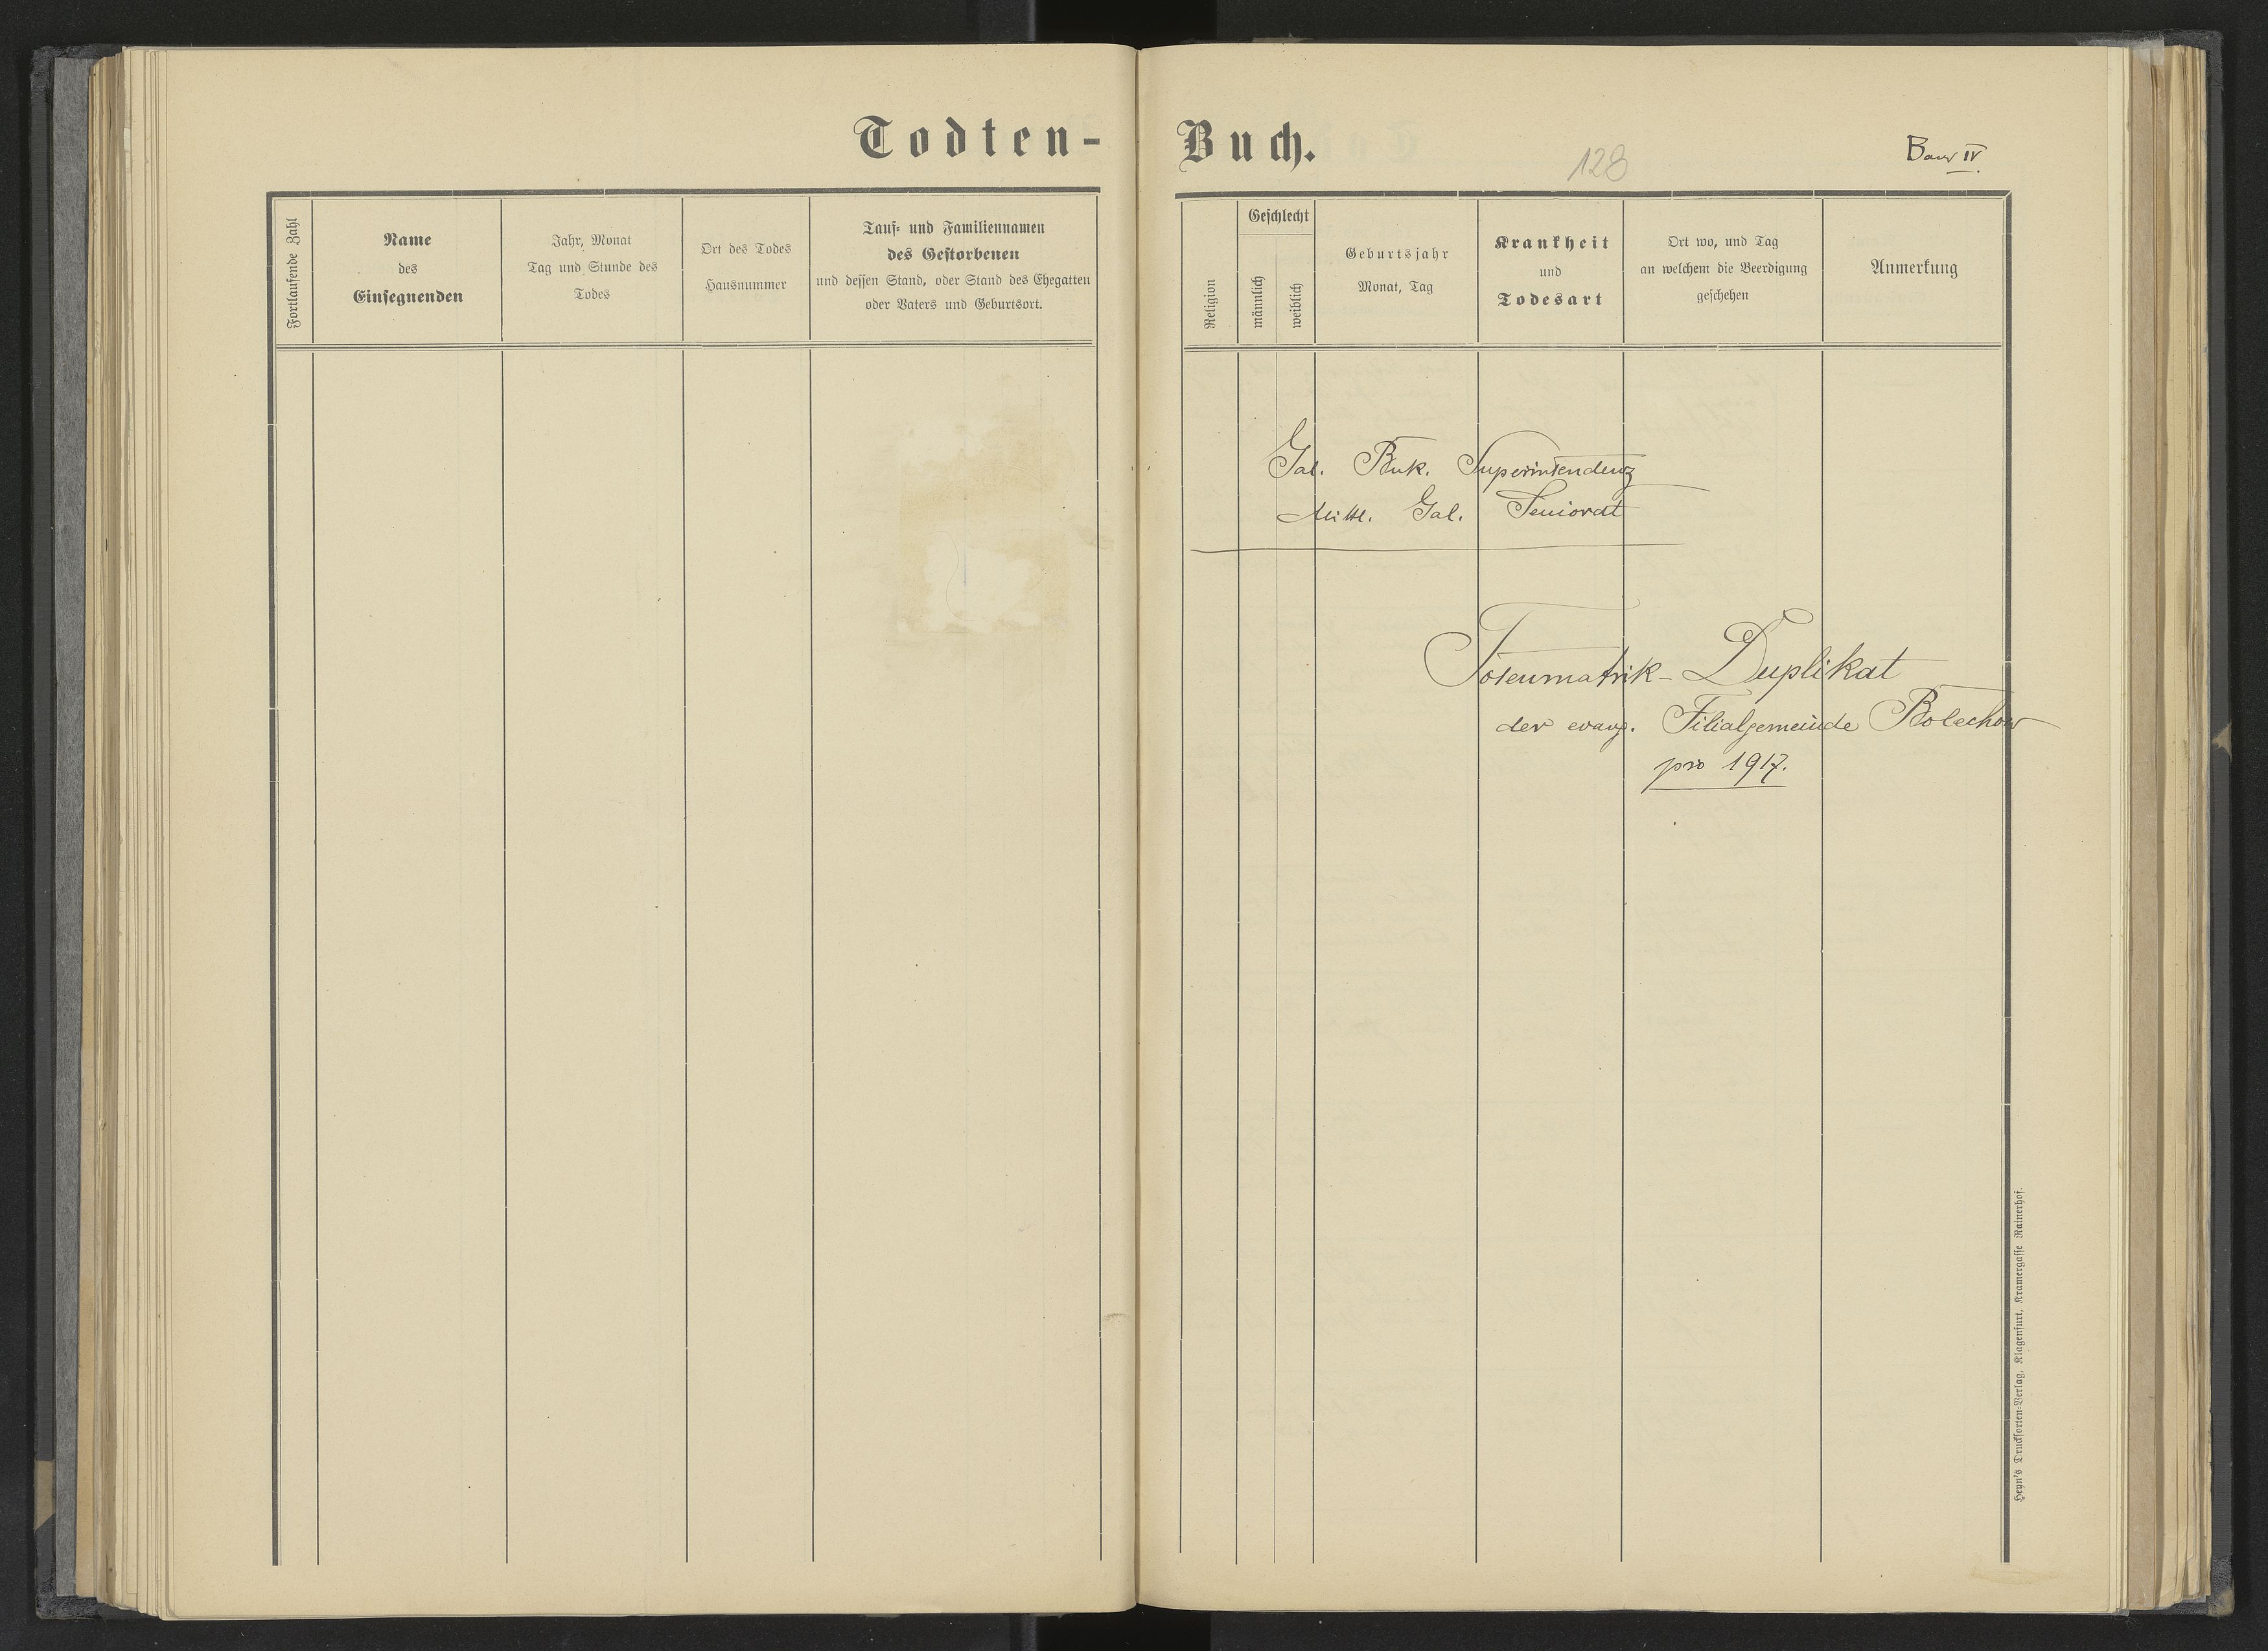 Todten-
Buch.
128
Band IV
Fortlaufende Zahl
Name
des
Einsegnenden
Jahr, Monat
Tag und Stunde des
Todes
Ort des Todes
Hausnummer
Tauf- und Familiennamen
des Gestorbenen
und dessen Stand, oder Stand des Ehegatten
oder Vaters und Geburtsort.
Religion
Geschlecht
männlich
weiblich
Geburtsjahr
Monat, Tag
Krankheit
und
Todesart
Ort wo, und Tag
an welchem die Beerdigung
geschehen
Anmerkung
Gal. Buk. Superintendenz
Mittl. Gal. Seniorat
Totenmatrik-Duplikat
der evang. Filialgemeinde Bolechow
pro 1917.
Heyn's Drucksorten-Verlag, Klagenfurt, Kramergasse Rainerhof.